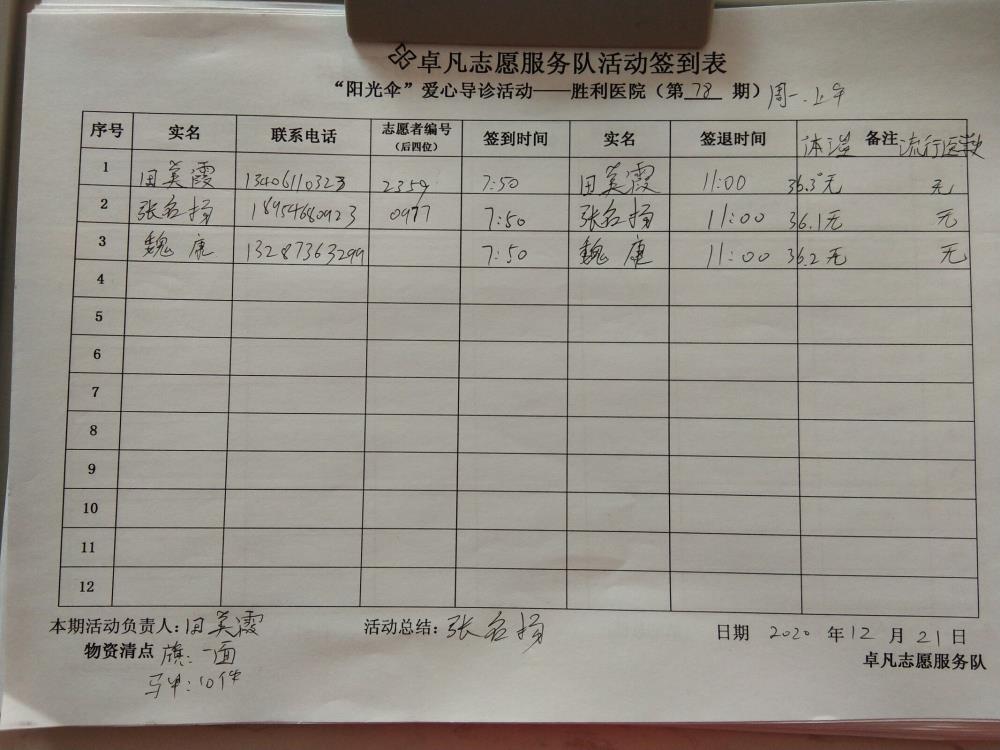 卓凡志愿服务队活动签到表
“阳光伞”爱心导诊活动——胜利医院（第 78 期）周一.上午
序号 实名 联系电话 志愿者编号（后四位） 签到时间 实名 签退时间 体温 备注 流行医学史
1 田美霞 13406110323 2359 7:50 田美霞 11:00 36.3°无 无
2 张名扬 18954680923 0977 7:50 张名扬 11:00 36.1无 无
3 魏康 13287363299 7:50 魏康 11:00 36.2无 无
4
5
6
7
8
9
10
11
12
本期活动负责人：田美霞 活动总结：张名扬 日期 2020 年 12 月 21 日
物资清点 旗：一面 卓凡志愿服务队
马甲：10件